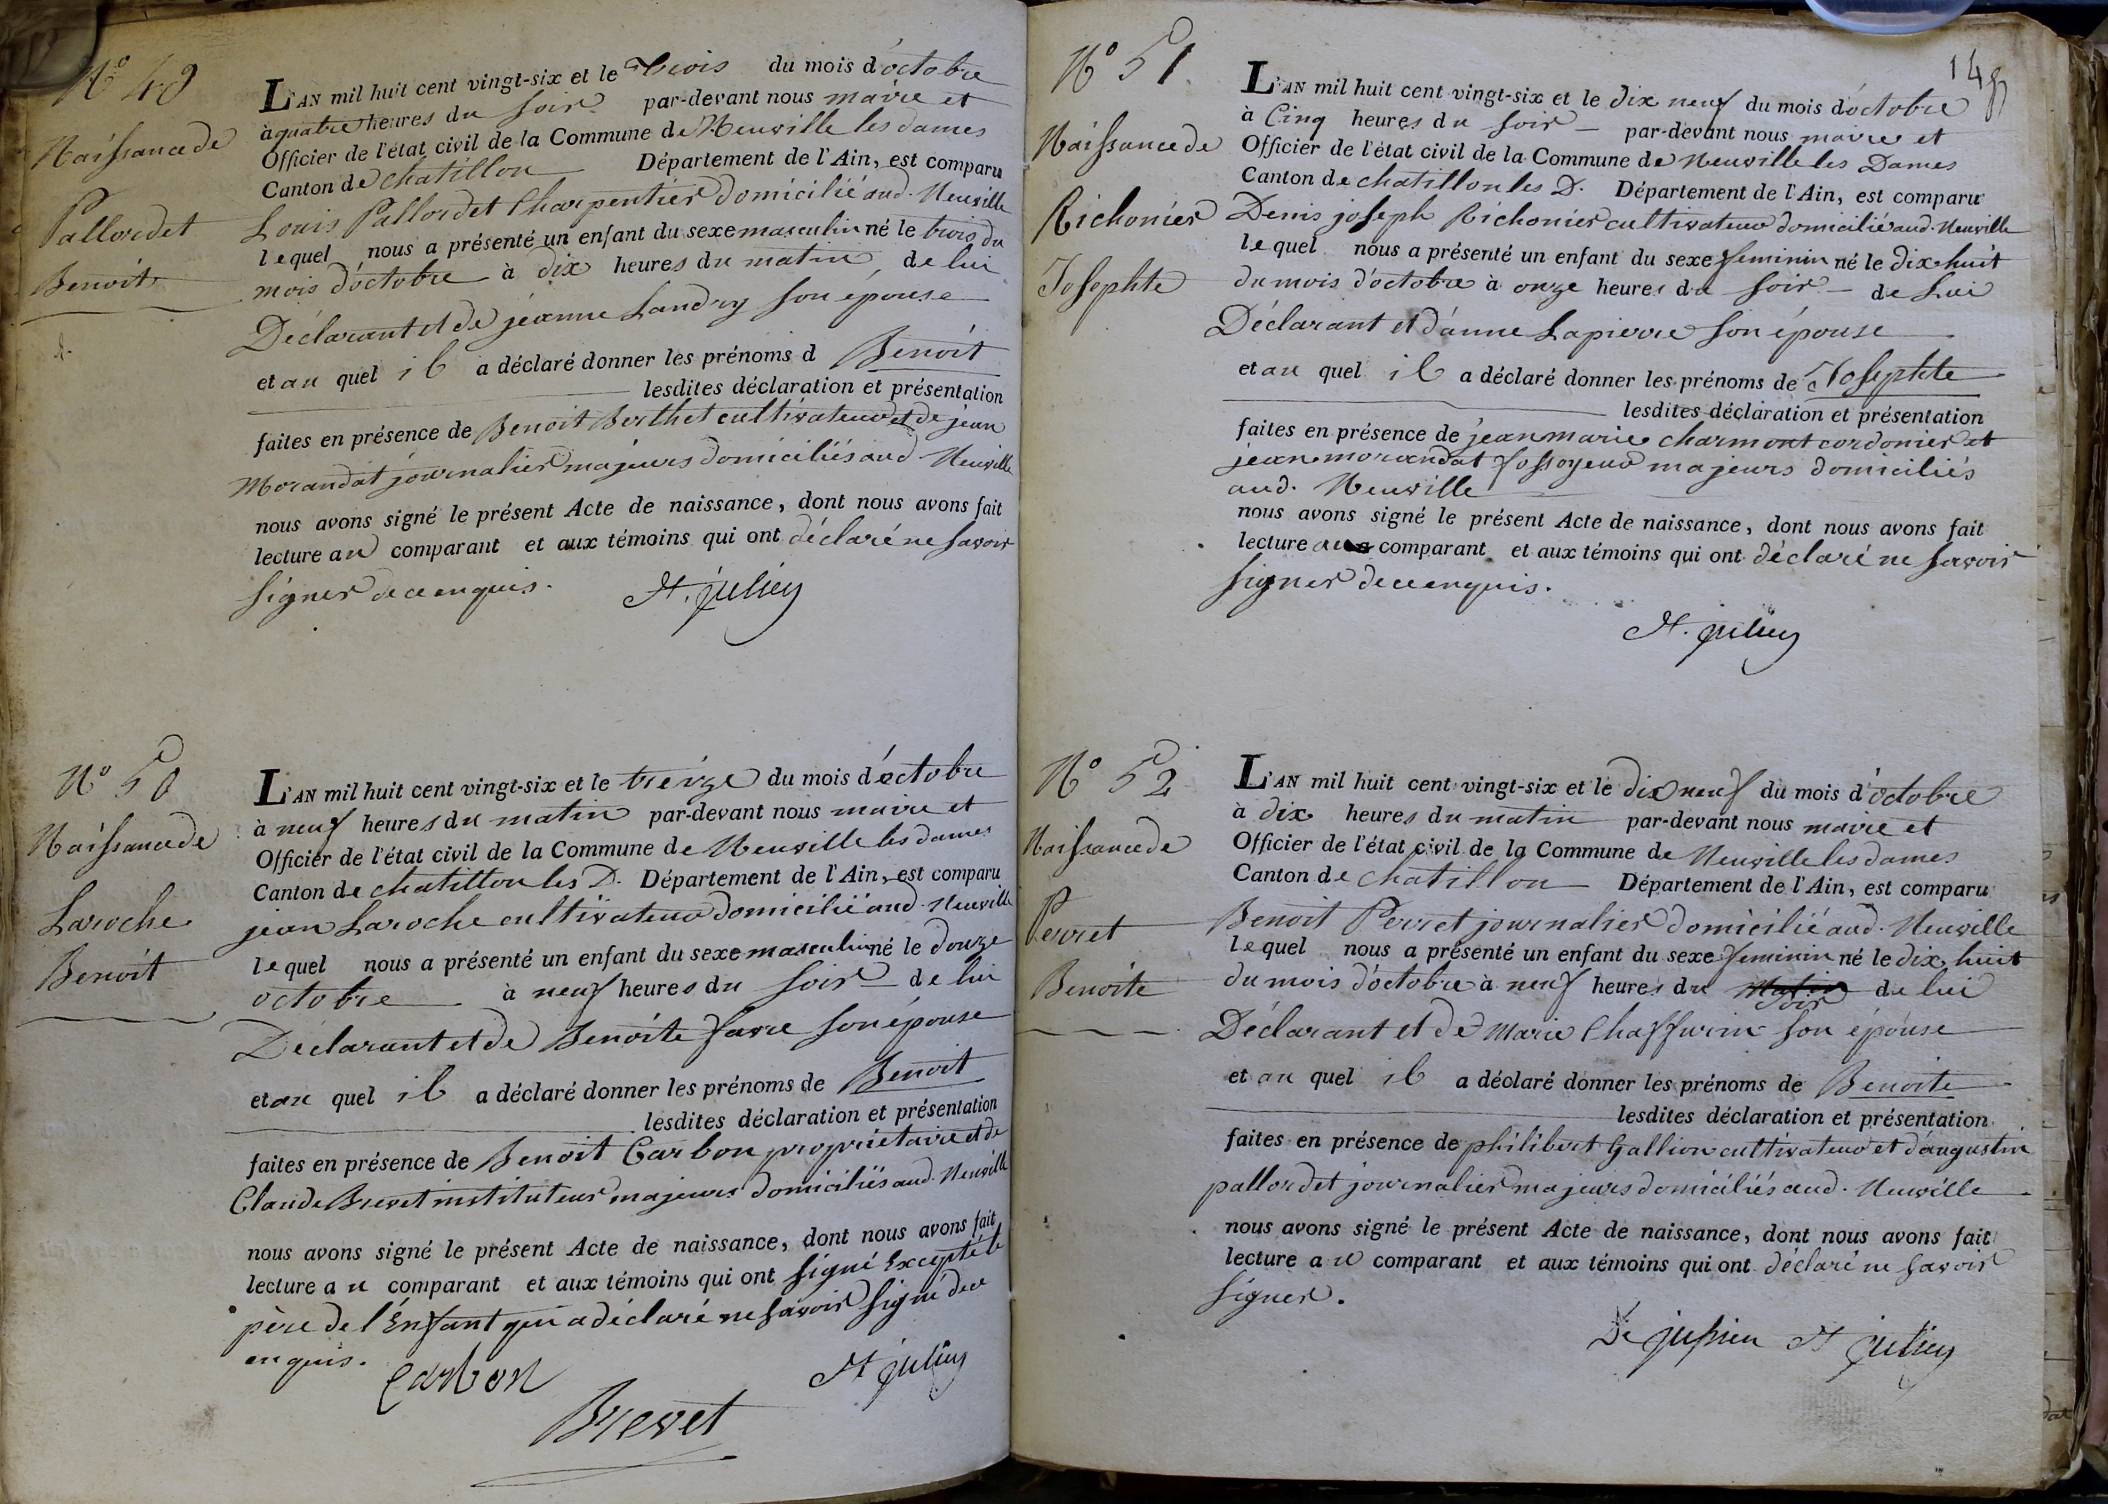 N° 49
Naissance de
Pallordet
Benoit
L'AN mil huit cent vingt-six et le trois du mois d'octobre
à quatre heures du soir par-devant nous maire et
Officier de l'état civil de la Commune de Neuville les dames
Canton de chatillon Département de l'Ain, est comparu
Louis Pallordet Charpentier domicilié aud. Neuville
lequel nous a présenté un enfant du sexe masculin né le trois du
mois d'octobre à dix heures du matin de lui
Déclarant et de jeanne Landry son épouse
et au quel il a déclaré donner les prénoms d Benoit
lesdites déclaration et présentation
faites en présence de Benoit Berthet cultivateur et de jean
Morandat journalier majeurs domiciliés aud Neuville
nous avons signé le présent Acte de naissance, dont nous avons fait
lecture au comparant et aux témoins qui ont déclaré ne savoir
signer de ce enquis.
St. julien
N° 50
Naissance de
Laroche
Benoit
L'AN mil huit cent vingt-six et le treize du mois d'octobre
à neuf heures du matin par-devant nous maire et
Officier de l'état civil de la Commune de Neuville les dames
Canton de chatillon les D. Département de l'Ain, est comparu
jean Laroche cultivateur domicilié aud. Neuville
lequel nous a présenté un enfant du sexe masculin né le douze
octobre à neuf heures du soir de lui
Déclarant et de Benoite favre son épouse
et au quel il a déclaré donner les prénoms de Benoit
lesdites déclaration et présentation
faites en présence de Benoit Carbon propriétaire et de
Claude Brevet instituteur majeurs domiciliés aud. Neuville
nous avons signé le présent Acte de naissance, dont nous avons fait
lecture au comparant et aux témoins qui ont signé Excepté le
père de l'Enfant qui a déclaré ne savoir signé de ce
enquis.
Carbon
St julien
Brevet
148
N° 51
Naissance de
Richonier
Josephte
L'AN mil huit cent vingt-six et le dix neuf du mois d'octobre
à Cinq heures du soir par-devant nous maire et
Officier de l'état civil de la Commune de Neuville les Dames
Canton de chatillon les D. Département de l'Ain, est comparu
Denis joseph Richonier cultivateur domicilié aud. Neuville
lequel nous a présenté un enfant du sexe feminin né le dix huit
du mois d'octobre à onze heures du soir de Lui
Déclarant et d'anne Lapierre son épouse
et au quel il a déclaré donner les prénoms de Josephte
lesdites déclaration et présentation
faites en présence de jean marie charmont cordonier et
jean morandat fossoyeur majeurs domiciliés
aud. Neuville
nous avons signé le présent Acte de naissance, dont nous avons fait
lecture au comparant et aux témoins qui ont déclaré ne savoir
signer de ce enquis.
St. julien
N° 52
Naissance de
Perret
Benoite
L'AN mil huit cent vingt-six et le dix neuf du mois d'octobre
à dix heures du matin par-devant nous maire et
Officier de l'état civil de la Commune de Neuville les dames
Canton de chatillon Département de l'Ain, est comparu
Benoit Perret journalier domicilié aud. Neuville
lequel nous a présenté un enfant du sexe feminin né le dix huit
du mois d'octobre à neuf heures du matin soir de lui
Déclarant et de Marie Chaffurin son épouse
et au quel il a déclaré donner les prénoms de Benoite
lesdites déclaration et présentation
faites en présence de philibert Gallion cultivateur et d'augustin
pallordet journalier majeurs domiciliés aud. Neuville
nous avons signé le présent Acte de naissance, dont nous avons fait
lecture au comparant et aux témoins qui ont déclaré ne savoir
signer.
De jussieu St julien